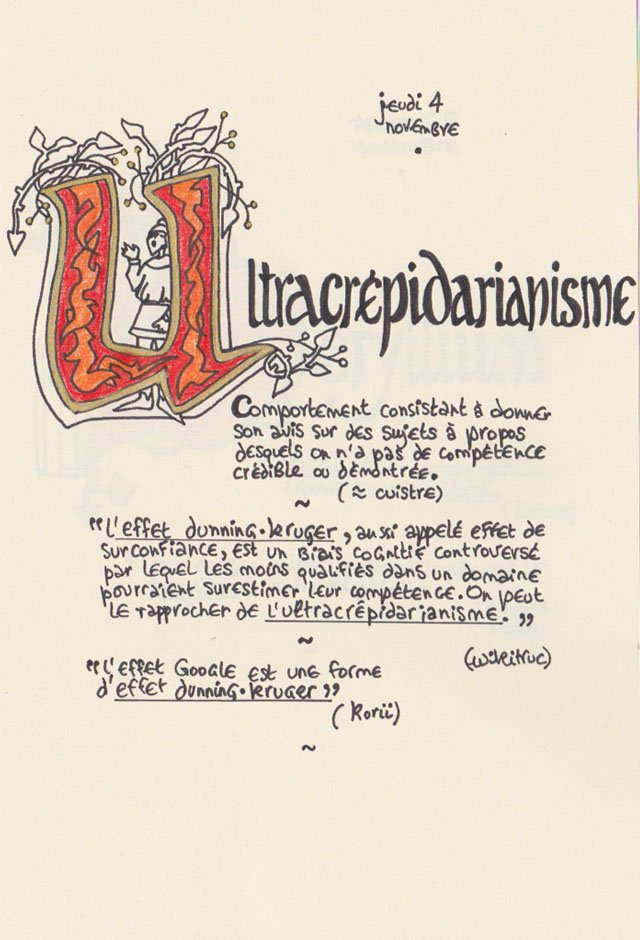 jeudi 4
novembre
.
Ultracrépidarianisme
Comportement consistant à donner
son avis sur des sujets à propos
desquels on n'a pas de compétence
crédible ou démontrée.
(≈ cuistre)
~
"L'effet dunning-kruger, aussi appelé effet de
surconfiance, est un biais cognitif controversé
par lequel les moins qualifiés dans un domaine
pourraient surestimer leur compétence. On peut
le rapprocher de l'ultracrépidarianisme."
~
(wikitruc)
"L'effet Google est une forme
d'effet dunning-kruger"
(Korii)
~